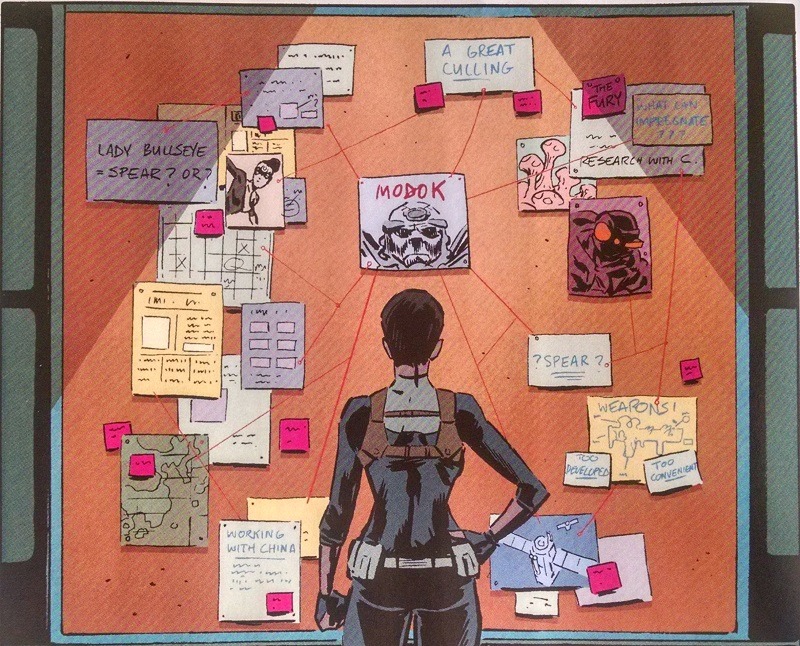 A GREAT
CULLING
THE
FURY
WHAT CAN
IMPREGNATE
???
RESEARCH WITH C.
LADY BULLSEYE
= SPEAR? OR?
MODOK
?SPEAR?
WEAPONS!
TOO
DEVELOPED
TOO
CONVENIENT
WORKING
WITH CHINA